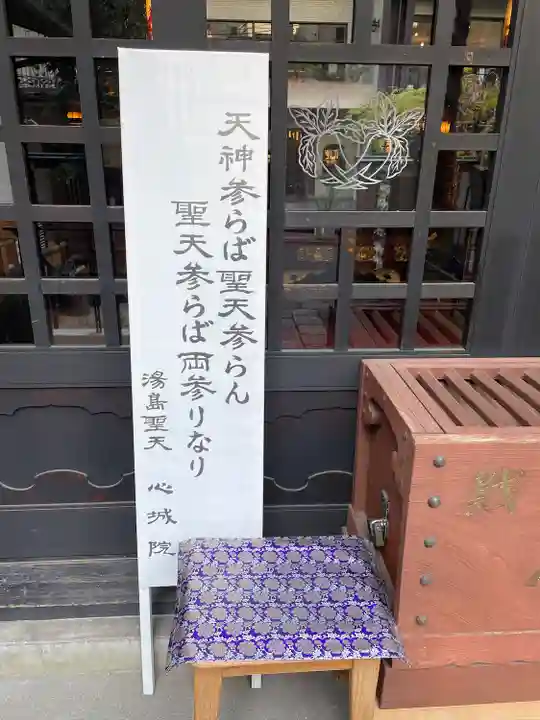 天神参らば聖天参らん
聖天参らば両参りなり
湯島聖天 心城院